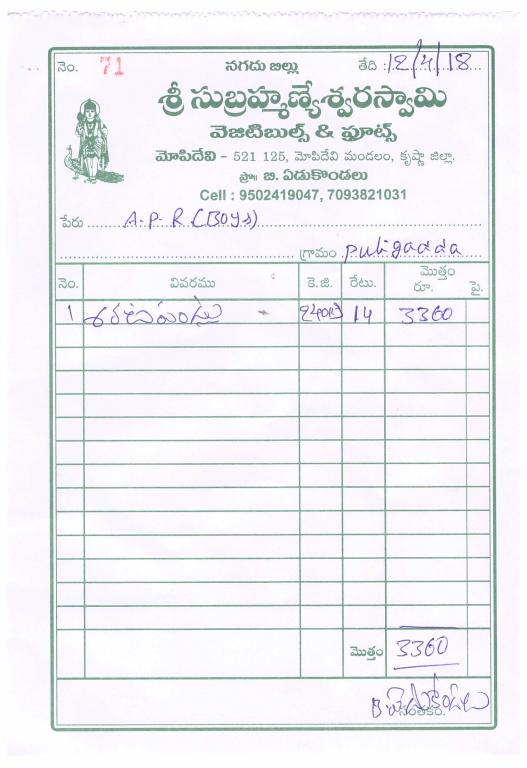 నెం. 71 నగదు బిల్లు తేది : 12/4/18
శ్రీ సుబ్రహ్మణ్యేశ్వరస్వామి
వెజిటిబుల్స్ & ఫ్రూట్స్
మోపిదేవి - 521 125, మోపిదేవి మండలం, కృష్ణా జిల్లా.
ప్రొ॥ బి. ఏడుకొండలు
Cell : 9502419047, 7093821031
పేరు A-P-R (Boys)
గ్రామం puligadda
నెం. వివరము కె.జి. రేటు. మొత్తం రూ. పై.
1 240 14 3360
మొత్తం 3360
B ఏడుకొండలు
సంతకం.